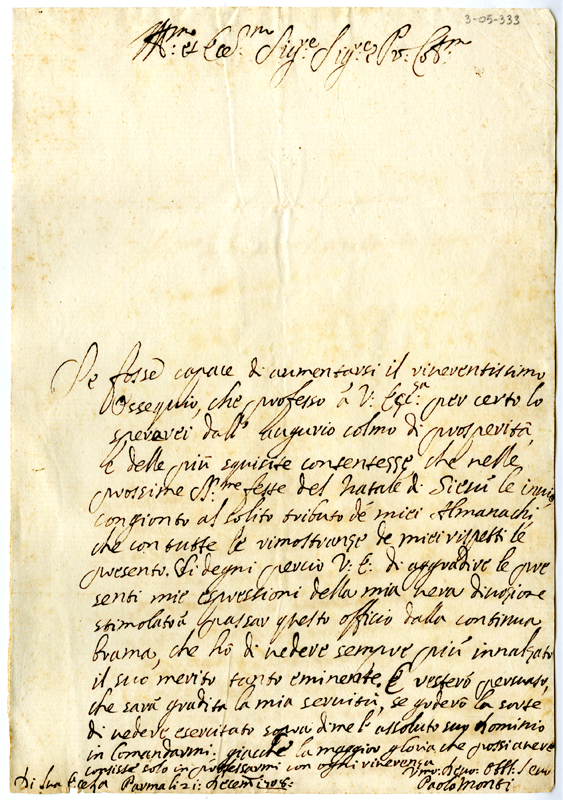 3-05-333
Ill.mo et Ecc.mo Sig.re Sig.re P.ron Col.mo
Se fosse capace di aumentarsi il riverentissimo
Ossequio, che professo à V: Ecc.a per certo lo
sperarei dall' augurio colmo di prosperità,
e delle più squisite contentezze che nelle
prossime SS.me feste del Natale di Giesù le invio
congionto al solito tributo de miei Almanachi
che con tutte le rimostranze de miei rispetti le
presento. Si degni perciò V: E: di aggradire le pre
senti mie espressioni della mia vera divozione
stimolato à passar questo officio dalla continua
brama, che hò di vedere sempre più innalzato
il suo merito tanto eminente, E resterò persuaso,
che sarà gradita la mia servitù, se goderò la sorte
di vedere esercitato sovra di me l' assoluto suo dominio
in Comandarmi: giacchè la maggior gloria che possi avere
consiste solo in professarmi con ogni riverenza
Di Sua Ecc.za Parma li 21: decem:
Umo: Devo: Obli: Ser
Paolo Monti